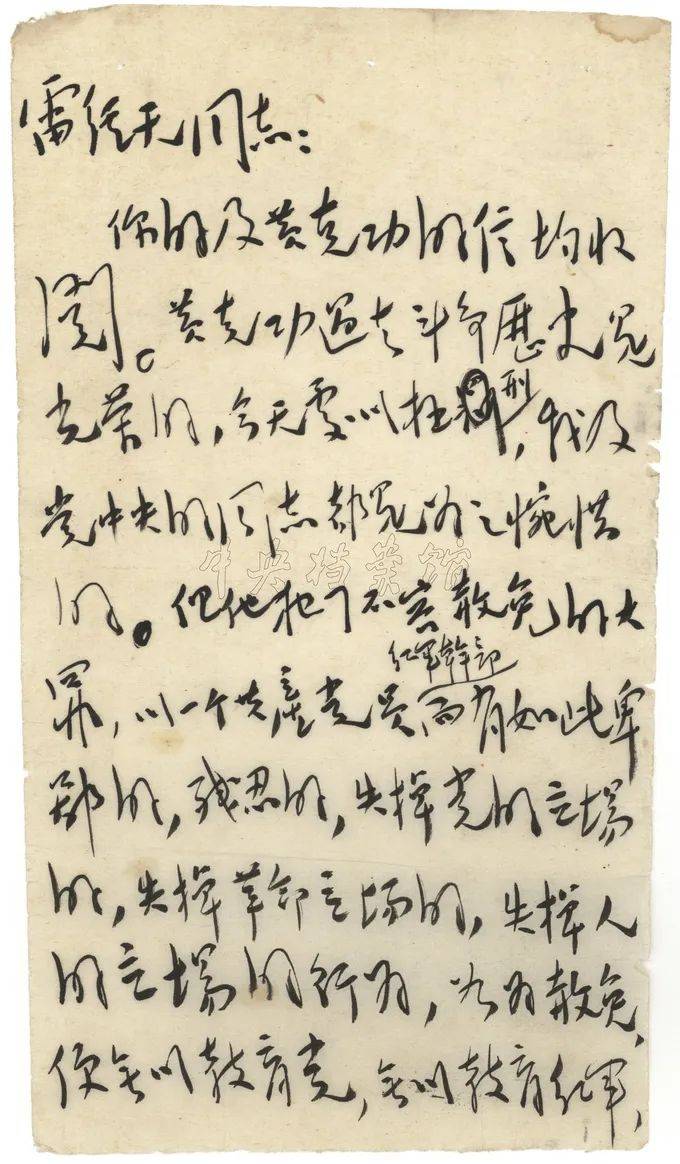 雷经天同志：
你的及黄克功的信均收
閲。黄克功过去斗争歷史是
光荣的，今天處以极刑，我及
党中央的同志都是为之惋惜
中央档案馆
的。但他犯了不容赦免的大
红軍幹部
罪，以一个共產党员而有如此卑
鄙的，残忍的，失掉党的立場
的，失掉革命立场的，失掉人
的立場的行为，如为赦免，
便无以教育党，无以教育红軍，